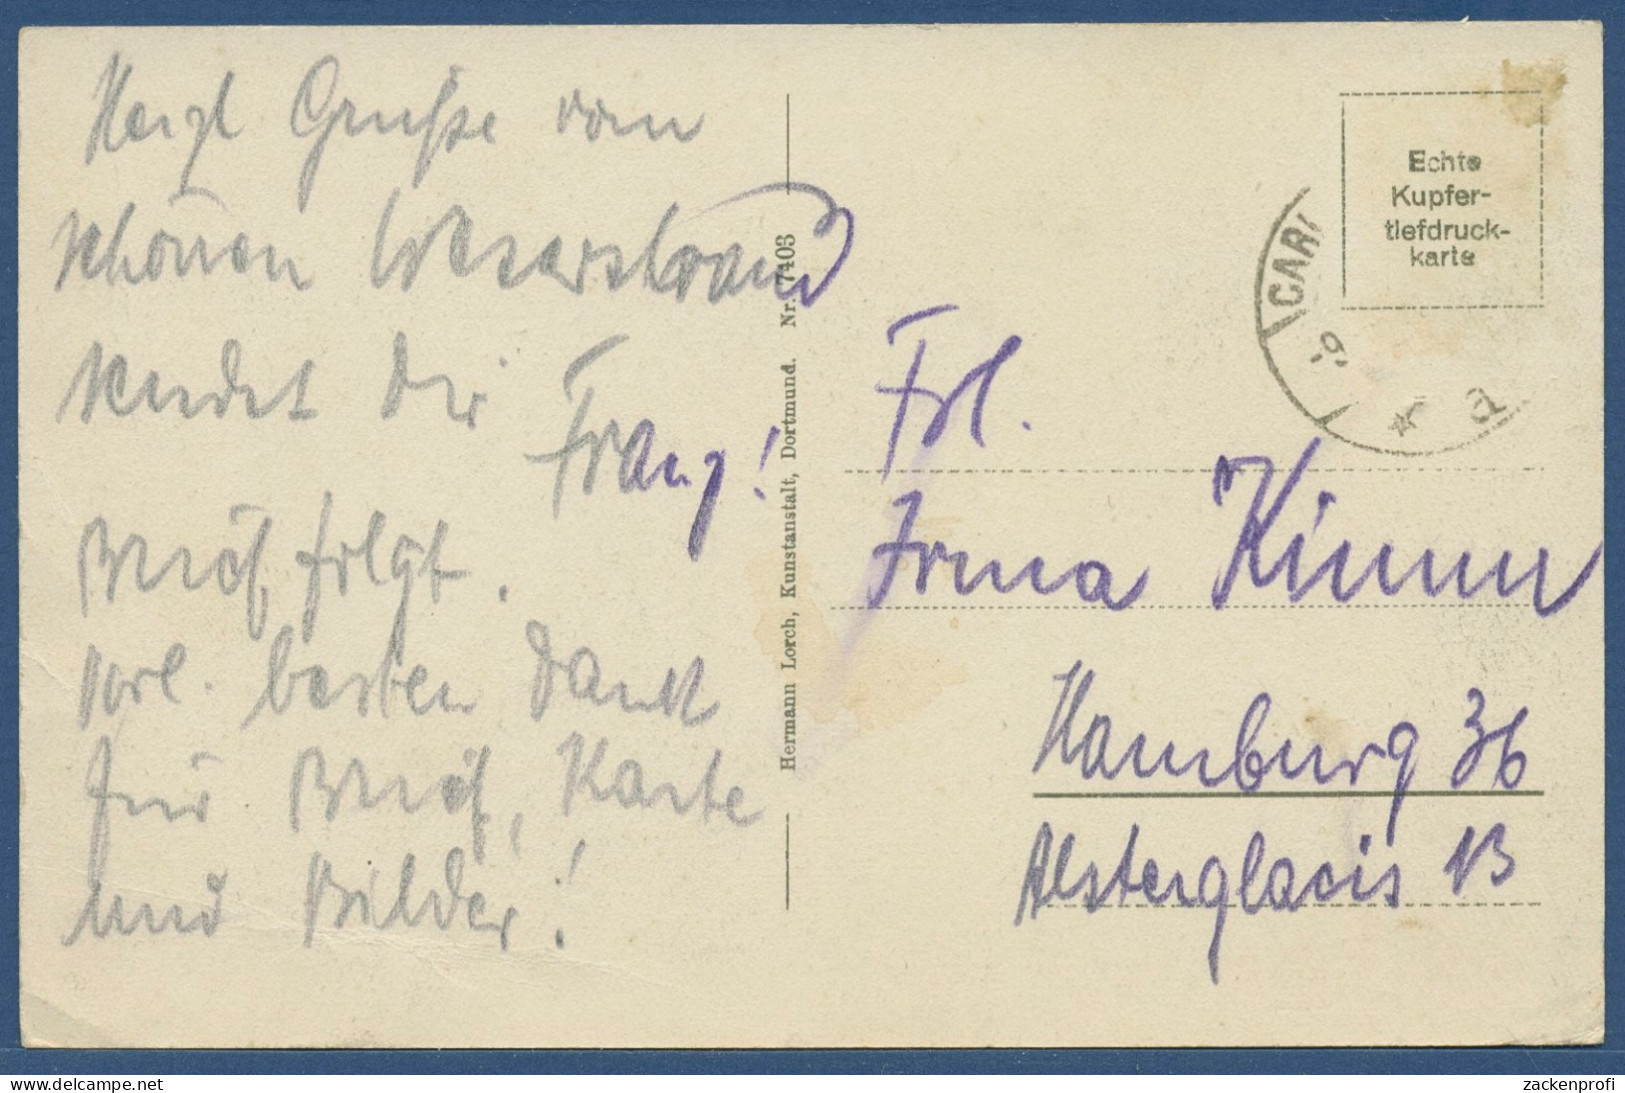 Herzl Grüße vom
schönen Weserstrand
sendet Dir
Franz!
Brief folgt.
Vorl. besten Dank
für Brief, Karte
und Bilder!
Hermann Lorch, Kunstanstalt, Dortmund. Nr. 7403
Echte
Kupfer-
tiefdruck-
karte
CARL
a
Frl.
Irma Kimm
Hamburg 36
Alsterglacis 13
zackenprofi